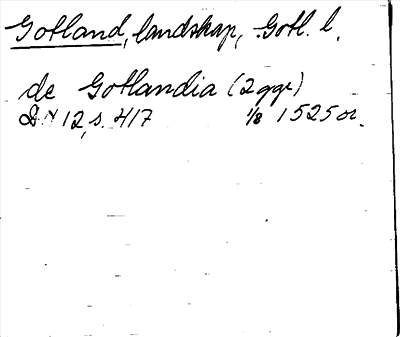 Gotland, landskap, Gotl. l.
de Gotlandia (2 ggr)
D.N 12, s. 417 1/8 1525 or.